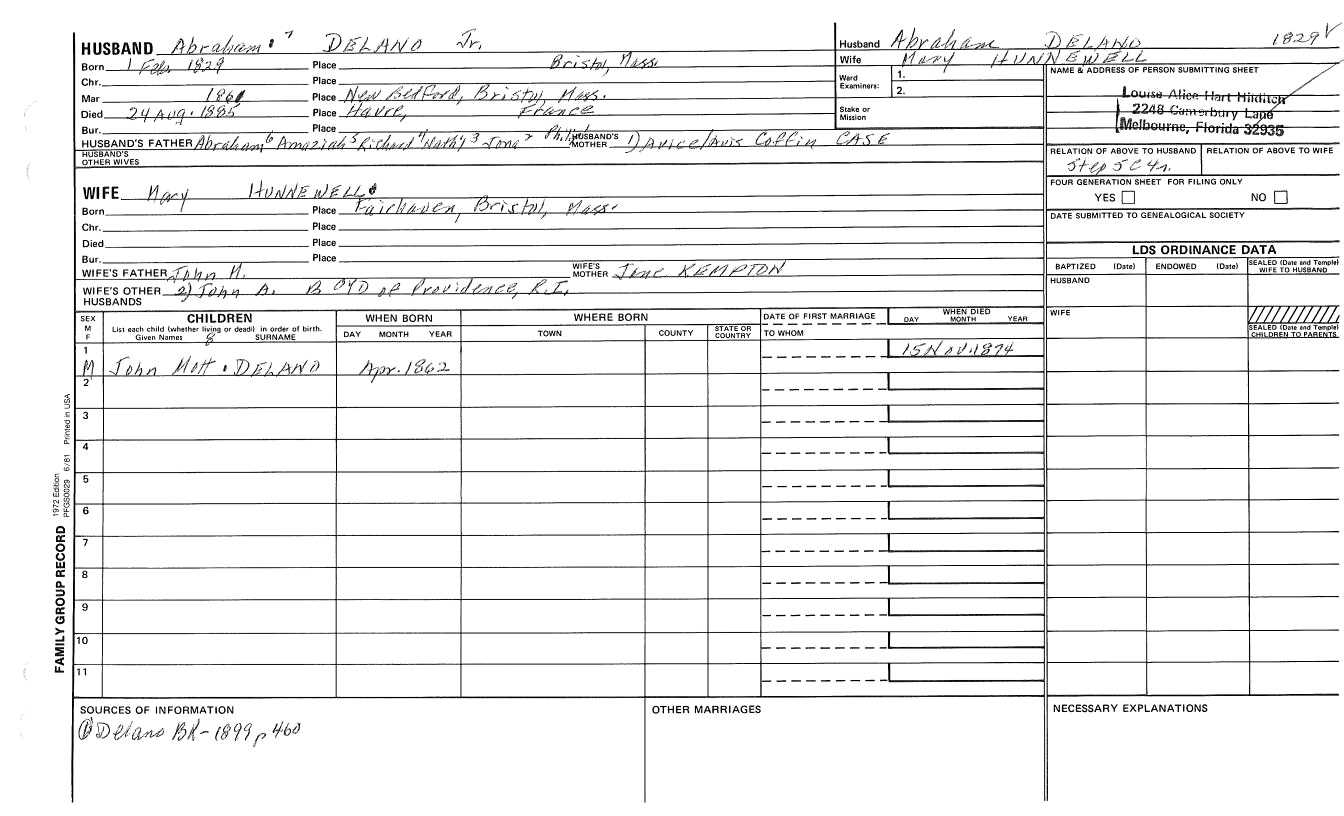 HUSBAND Abraham 7 DELANO Jr.
Born 1 Feb 1829 Place Bristol, Mass.
Chr. Place
Mar 1861 Place New Bedford, Bristol, Mass.
Died 24 Aug. 1885 Place Havre, France
Bur. Place
HUSBAND'S FATHER Abraham 6 Amaziah 5 Richard 4 Nath'l 3 Jona 2 HUSBAND'S MOTHER 1) Avice/Avis Coffin CASE
HUSBAND'S OTHER WIVES
WIFE Mary HUNNEWELL
Born Place Fairhaven, Bristol, Mass.
Chr. Place
Died Place
Bur. Place
WIFE'S FATHER John H. WIFE'S MOTHER Jane KEMPTON
WIFE'S OTHER HUSBANDS 2) John A. BOYD of Providence, R.I.
Husband Abraham DELANO 1829 V
Wife Mary HUNNEWELL
Ward Examiners: 1.
2.
Stake or Mission
NAME & ADDRESS OF PERSON SUBMITTING SHEET
Louise Alice Hart Hilditch
2248 Camerbury Lane
Melbourne, Florida 32935
RELATION OF ABOVE TO HUSBAND RELATION OF ABOVE TO WIFE
Step 5C4r.
FOUR GENERATION SHEET FOR FILING ONLY
YES NO
DATE SUBMITTED TO GENEALOGICAL SOCIETY
LDS ORDINANCE DATA
BAPTIZED (Date) ENDOWED (Date) SEALED (Date and Temple) WIFE TO HUSBAND
HUSBAND
WIFE
SEALED (Date and Temple) CHILDREN TO PARENTS
SEX M F
CHILDREN
List each child (whether living or dead) in order of birth.
Given Names 8 SURNAME
WHEN BORN
DAY MONTH YEAR
WHERE BORN
TOWN COUNTY STATE OR COUNTRY
DATE OF FIRST MARRIAGE
TO WHOM
WHEN DIED
DAY MONTH YEAR
1 15 Nov. 1874
M John Mott DELANO Apr. 1862
2
3
4
5
6
7
8
9
10
11
SOURCES OF INFORMATION
① Delano BK-1899 p 460
OTHER MARRIAGES
NECESSARY EXPLANATIONS
FAMILY GROUP RECORD 1972 Edition PFGS0029 6/81 Printed in USA